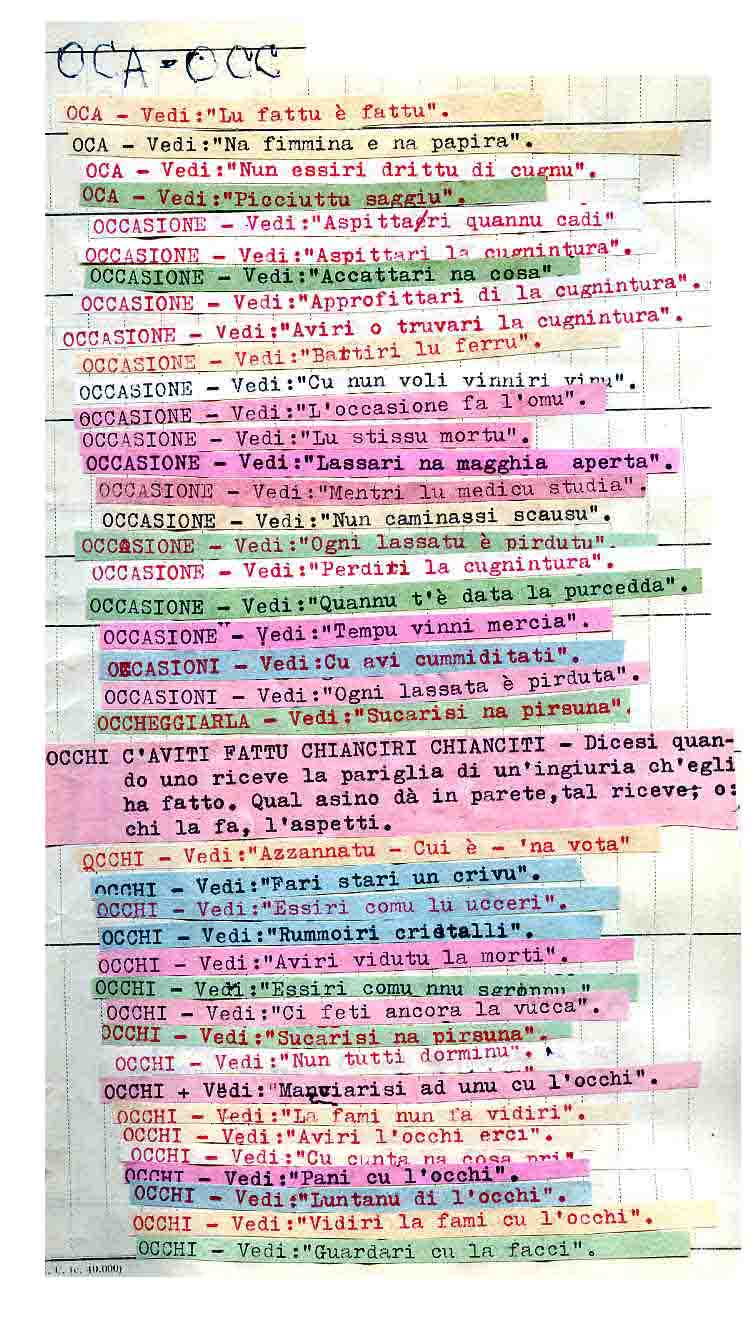 OCA-OCC
OCA - Vedi:"Lu fattu è fattu".
OCA - Vedi:"Na fimmina e na papira".
OCA - Vedi:"Nun essiri drittu di cugnu".
OCA - Vedi:"Picciuttu saggiu".
OCCASIONE - Vedi:"Aspittari quannu cadi"
OCCASIONE - Vedi:"Aspittari la cugnintura".
OCCASIONE - Vedi:"Accattari na cosa"
OCCASIONE - Vedi:"Approfittari di la cugnintura".
OCCASIONE - Vedi:"Aviri o truvari la cugnintura".
OCCASIONE - Vedi:"Battiri lu ferru".
OCCASIONE - Vedi:"Cu nun voli vinniri vinu".
OCCASIONE - Vedi:"L'occasione fa l'omu".
OCCASIONE - Vedi:"Lu stissu mortu".
OCCASIONE - Vedi:"Lassari na magghia aperta".
OCCASIONE - Vedi:"Mentri lu medicu studia".
OCCASIONE - Vedi:"Nun caminassi scausu".
OCCASIONE - Vedi:"Ogni lassatu è pirdutu".
OCCASIONE - Vedi:"Perdiri la cugnintura".
OCCASIONE - Vedi:"Quannu t'è data la purcedda".
OCCASIONE"- Vedi:"Tempu vinni mercia".
OCCASIONI - Vedi:Cu avi cummiditati".
OCCASIONI - Vedi:"Ogni lassata è pirduta".
OCCHEGGIARLA - Vedi:"Sucarisi na pirsuna".
OCCHI C'AVITI FATTU CHIANCIRI CHIANCITI - Dicesi quan-
do uno riceve la pariglia di un'ingiuria ch'egli
ha fatto. Qual asino dà in parete,tal riceve; o:
chi la fa, l'aspetti.
OCCHI - Vedi:"Azzannatu - Cui è - 'na vota"
OCCHI - Vedi:"Fari stari un crivu".
OCCHI - Vedi:"Essiri comu lu ucceri".
OCCHI - Vedi:"Rummoiri cristalli".
OCCHI - Vedi:"Aviri vidutu la morti".
OCCHI - Vedi:"Essiri comu nnu"
OCCHI - Vedi:"Ci feti ancora la vucca".
OCCHI - Vedi:"Sucarisi na pirsuna".
OCCHI - Vedi:"Nun tutti dorminu".
OCCHI + Vedi:"Manciarisi ad unu cu l'occhi".
OCCHI - Vedi:"La fami nun fa vidiri".
OCCHI - Vedi:"Aviri l'occhi erci".
OCCHI - Vedi:"Cu cunta na cosa pri".
OCCHI - Vedi:"Pani cu l'occhi".
OCCHI - Vedi:"Luntanu di l'occhi".
OCCHI - Vedi:"Vidiri la fami cu l'occhi".
OCCHI - Vedi:"Guardari cu la facci".
40.000)